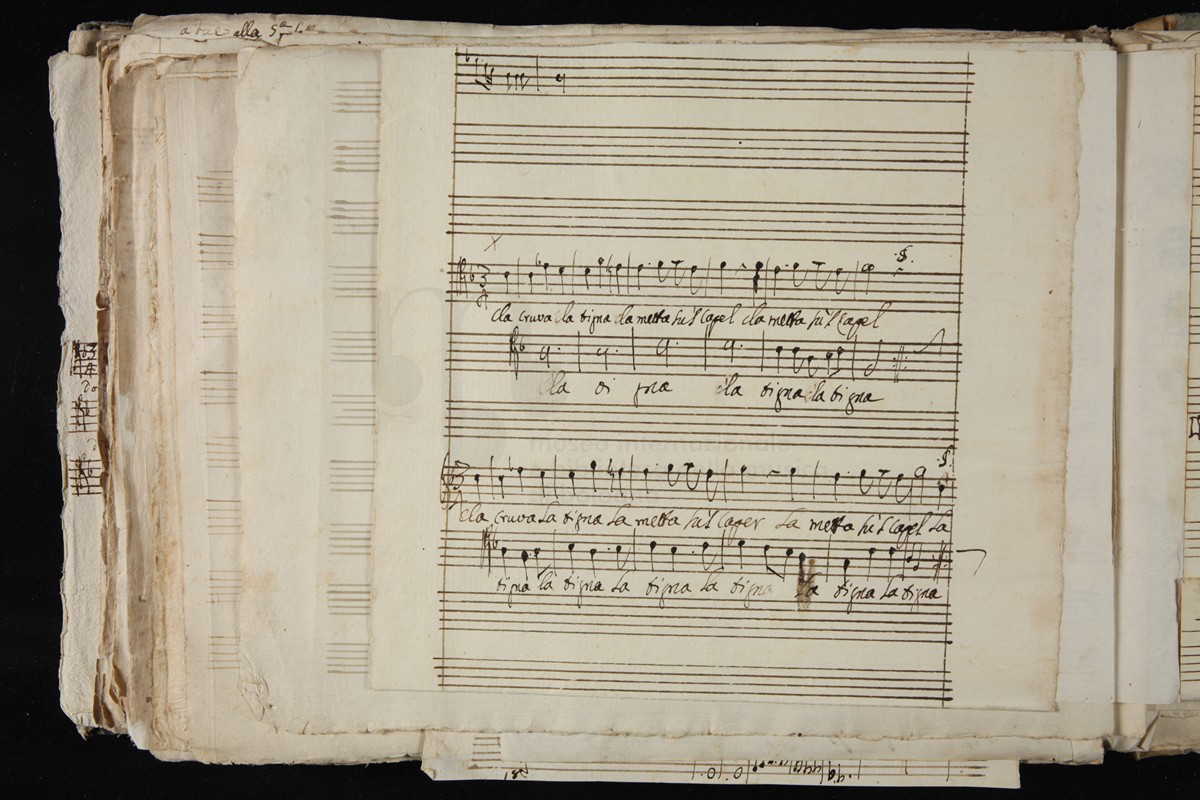 alla 5ª
cla cruva la tigna la metta sù'l Capel cla metta sù'l Capel
cla ti gna cla tigna la tigna
cla cruva la tigna la metta sù'l Caper la metta sù'l Capel la
tigna la tigna la tigna la tigna la tigna la tigna
museo internazionale